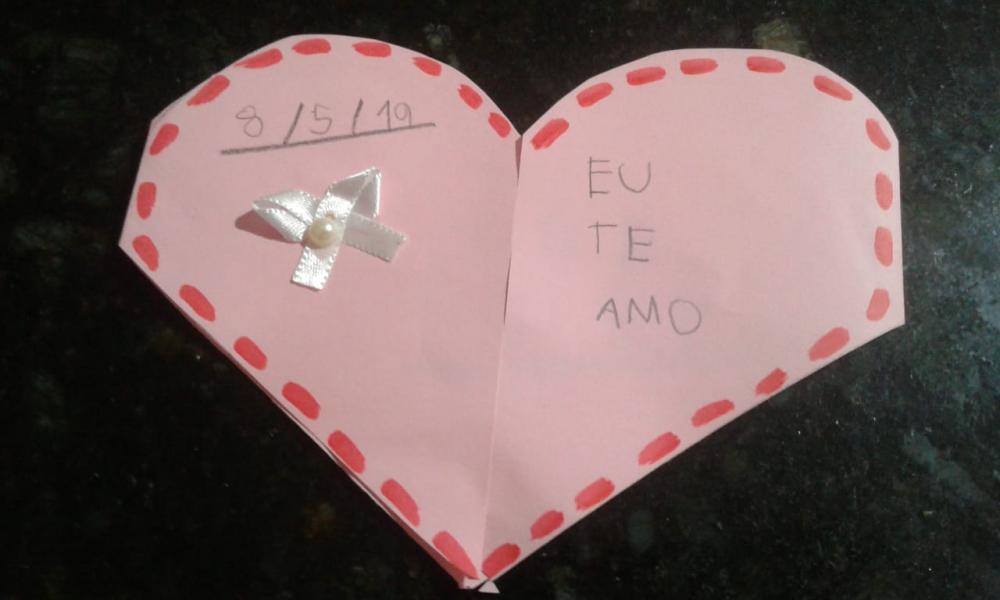 8/5/19
EU
TE
AMO